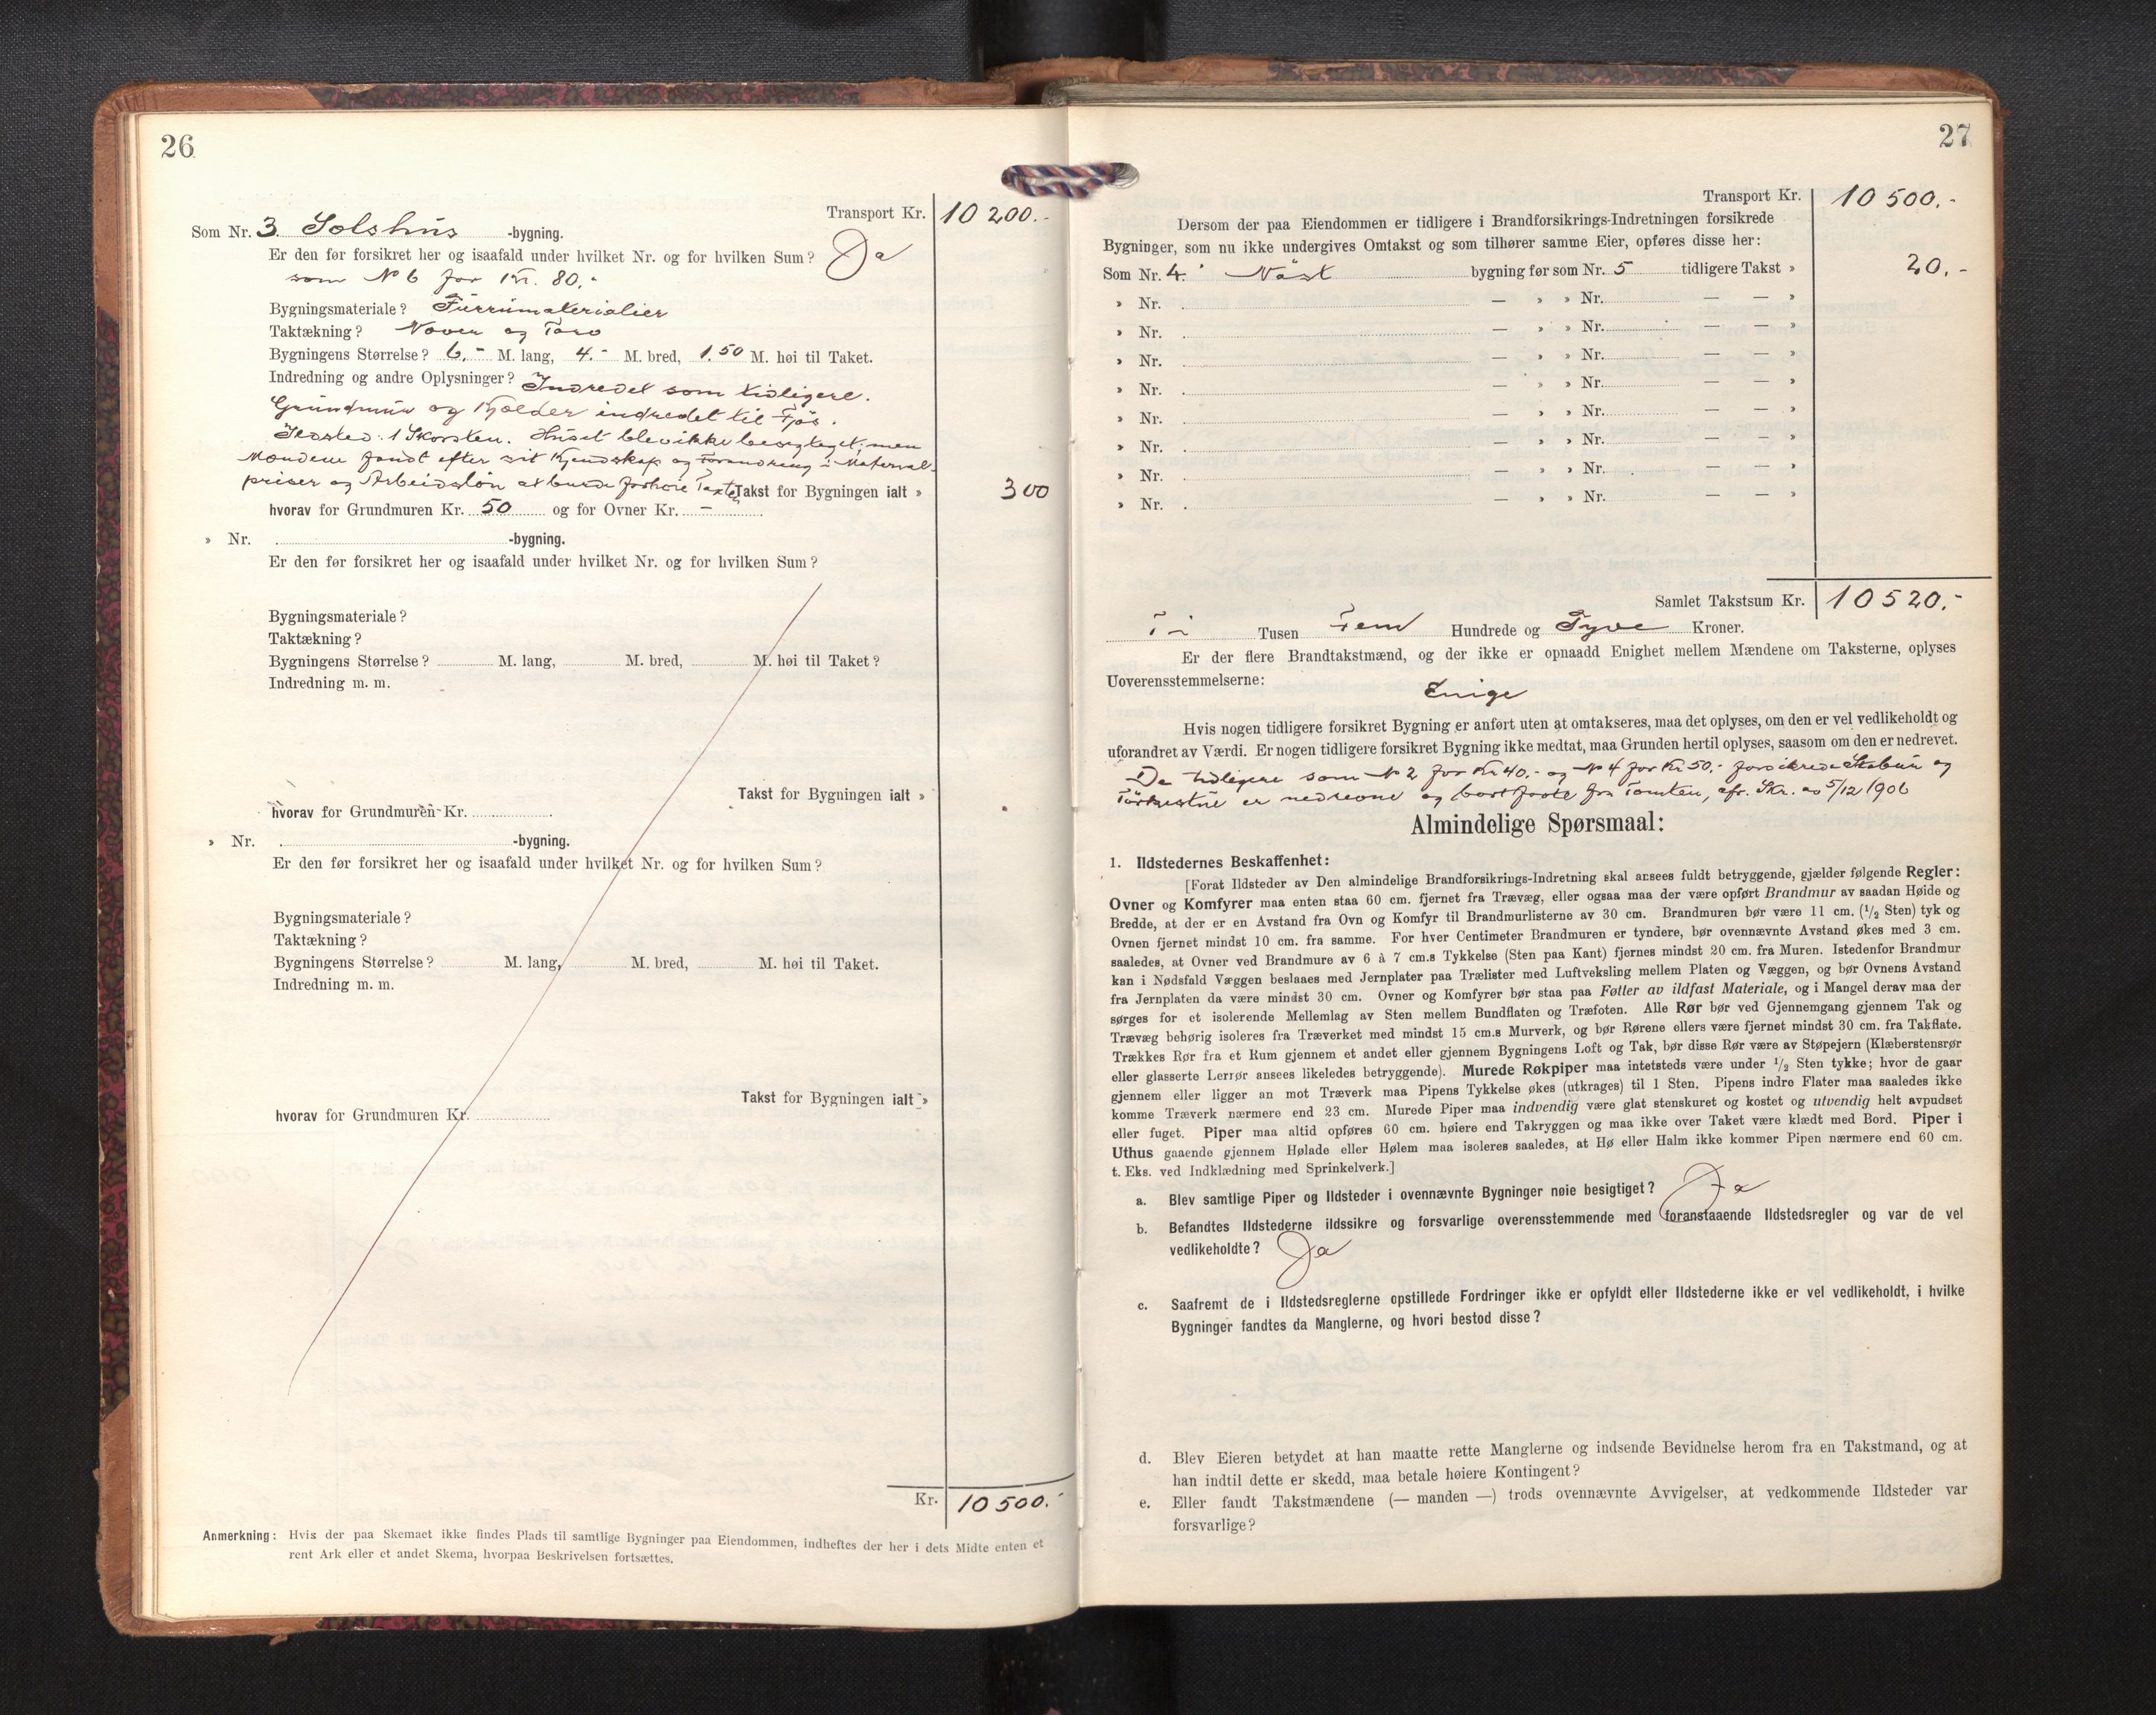 26
Transport Kr. 10 200.-
Som Nr. 3. Solshus -bygning.
Er den før forsikret her og isaafald under hvilket Nr. og for hvilken Sum? Ja
som № 6 for Kr. 80.-
Bygningsmateriale? Furrumaterialier
Taktækning? Nøver og Torv
Bygningens Størrelse? 6.- M. lang, 4.- M. bred, 1.50 M. høi til Taket.
Indredning og andre Oplysninger? Indredet som tidligere.
Grundmur og Kjælder indredet til Fjøs.
Ildsted: 1 Skorsten. Huset blev ikke besigtiget, men
Mændene fandt efter sit Kjendskap og Forandring i Material-
priser og Arbeidsløn at burde forhøie Taxten
Takst for Bygningen ialt » 300
hvorav for Grundmuren Kr. 50 og for Ovner Kr. -
» Nr. -bygning.
Er den før forsikret her og isaafald under hvilket Nr. og for hvilken Sum?
Bygningsmateriale?
Taktækning?
Bygningens Størrelse? M. lang, M. bred, M. høi til Taket?
Indredning m. m.
Takst for Bygningen ialt »
hvorav for Grundmuren Kr.
» Nr. -bygning.
Er den før forsikret her og isaafald under hvilket Nr. og for hvilken Sum?
Bygningsmateriale?
Taktækning?
Bygningens Størrelse? M. lang, M. bred, M. høi til Taket.
Indredning m. m.
Takst for Bygningen ialt »
hvorav for Grundmuren Kr.
Kr. 10 500.-
Anmerkning: Hvis der paa Skemaet ikke findes Plads til samtlige Bygninger paa Eiendommen, indheftes der her i dets Midte enten et
rent Ark eller et andet Skema, hvorpaa Beskrivelsen fortsættes.
27
Transport Kr. 10 500.-
Dersom der paa Eiendommen er tidligere i Brandforsikrings-Indretningen forsikrede
Bygninger, som nu ikke undergives Omtakst og som tilhører samme Eier, opføres disse her:
Som Nr. 4. Nøst bygning før som Nr. 5 tidligere Takst » 20.-
» Nr. — » » Nr. — — »
» Nr. — » » Nr. — — »
» Nr. — » » Nr. — — »
» Nr. — » » Nr. — — »
» Nr. — » » Nr. — — »
» Nr. — » » Nr. — — »
» Nr. — » » Nr. — — »
» Nr. — » » Nr. — — »
Samlet Takstsum Kr. 10 520.-
Ti Tusen Fem Hundrede og Tyve Kroner.
Er der flere Brandtakstmænd, og der ikke er opnaadd Enighet mellem Mændene om Taksterne, oplyses
Uoverensstemmelserne:
Enige
Hvis nogen tidligere forsikret Bygning er anført uten at omtakseres, maa det oplyses, om den er vel vedlikeholdt og
uforandret av Værdi. Er nogen tidligere forsikret Bygning ikke medtat, maa Grunden hertil oplyses, saasom om den er nedrevet.
De tidligere som № 2 for Kr 40.- og № 4 for Kr 50.- forsikrede Stabur og
Tørkestue er nedrevne og bortførte fra Tomten, cfr. Skr. av 5/12 1906
Almindelige Spørsmaal:
1. Ildstedernes Beskaffenhet:
[Forat Ildsteder av Den almindelige Brandforsikrings-Indretning skal ansees fuldt betryggende, gjælder følgende Regler:
Ovner og Komfyrer maa enten staa 60 cm. fjernet fra Trævæg, eller ogsaa maa der være opført Brandmur av saadan Høide og
Bredde, at der er en Avstand fra Ovn og Komfyr til Brandmurlisterne av 30 cm. Brandmuren bør være 11 cm. (1/2 Sten) tyk og
Ovnen fjernet mindst 10 cm. fra samme. For hver Centimeter Brandmuren er tyndere, bør ovennævnte Avstand økes med 3 cm.
saaledes, at Ovner ved Brandmure av 6 à 7 cm.s Tykkelse (Sten paa Kant) fjernes mindst 20 cm. fra Muren. Istedenfor Brandmur
kan i Nødsfald Væggen beslaaes med Jernplater paa Trælister med Luftveksling mellem Platen og Væggen, og bør Ovnens Avstand
fra Jernplaten da være mindst 30 cm. Ovner og Komfyrer bør staa paa Føtter av ildfast Materiale, og i Mangel derav maa der
sørges for et isolerende Mellemlag av Sten mellem Bundflaten og Træfoten. Alle Rør bør ved Gjennemgang gjennem Tak og
Trævæg behørig isoleres fra Træverket med mindst 15 cm.s Murverk, og bør Rørene ellers være fjernet mindst 30 cm. fra Takflate.
Trækkes Rør fra et Rum gjennem et andet eller gjennem Bygningens Loft og Tak, bør disse Rør være av Støpejern (Klæberstensrør
eller glasserte Lerrør ansees likeledes betryggende). Murede Røkpiper maa intetsteds være under 1/2 Sten tykke; hvor de gaar
gjennem eller ligger an mot Træverk maa Pipens Tykkelse økes (utkrages) til 1 Sten. Pipens indre Flater maa saaledes ikke
komme Træverk nærmere end 23 cm. Murede Piper maa indvendig være glat stenskuret og kostet og utvendig helt avpudset
eller fuget. Piper maa altid opføres 60 cm. høiere end Takryggen og maa ikke over Taket være klædt med Bord. Piper i
Uthus gaaende gjennem Hølade eller Hølem maa isoleres saaledes, at Hø eller Halm ikke kommer Pipen nærmere end 60 cm.
t. Eks. ved Indklædning med Sprinkelverk.]
a. Blev samtlige Piper og Ildsteder i ovennævnte Bygninger nøie besigtiget? Ja
b. Befandtes Ildstederne ildssikre og forsvarlige overensstemmende med foranstaaende Ildstedsregler og var de vel
vedlikeholdte? Ja
c. Saafremt de i Ildstedsreglerne opstillede Fordringer ikke er opfyldt eller Ildstederne ikke er vel vedlikeholdt, i hvilke
Bygninger fandtes da Manglerne, og hvori bestod disse?
d. Blev Eieren betydet at han maatte rette Manglerne og indsende Bevidnelse herom fra en Takstmand, og at
han indtil dette er skedd, maa betale høiere Kontingent?
e. Eller fandt Takstmændene (— manden —) trods ovennævnte Avvigelser, at vedkommende Ildsteder var
forsvarlige?